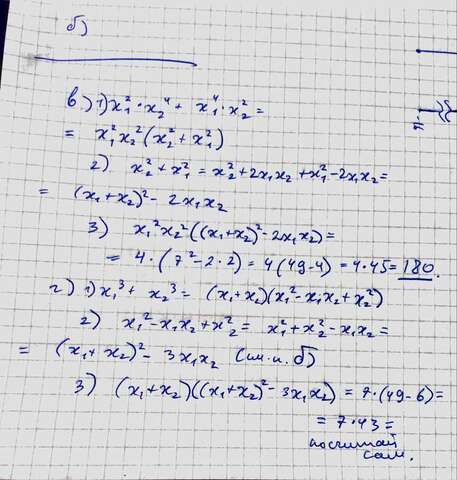 б)
в) 1) x₁² · x₂⁴ + x₁⁴ · x₂² =
= x₁²x₂²(x₂² + x₁²)
2) x₂² + x₁² = x₂² + 2x₁x₂ + x₁² - 2x₁x₂ =
= (x₁ + x₂)² - 2x₁x₂
3) x₁²x₂²((x₁+x₂)² - 2x₁x₂) =
= 4 · (7² - 2 · 2) = 4(49-4) = 4·45 = 180.
г) 1) x₁³ + x₂³ = (x₁+x₂)(x₁² - x₁x₂ + x₂²)
2) x₁² - x₁x₂ + x₂² = x₁² + x₂² - x₁x₂ =
= (x₁ + x₂)² - 3x₁x₂ (см. п. б)
3) (x₁+x₂)((x₁+x₂)² - 3x₁x₂) = 7·(49-6) =
= 7·43 =
посчитай
сам.